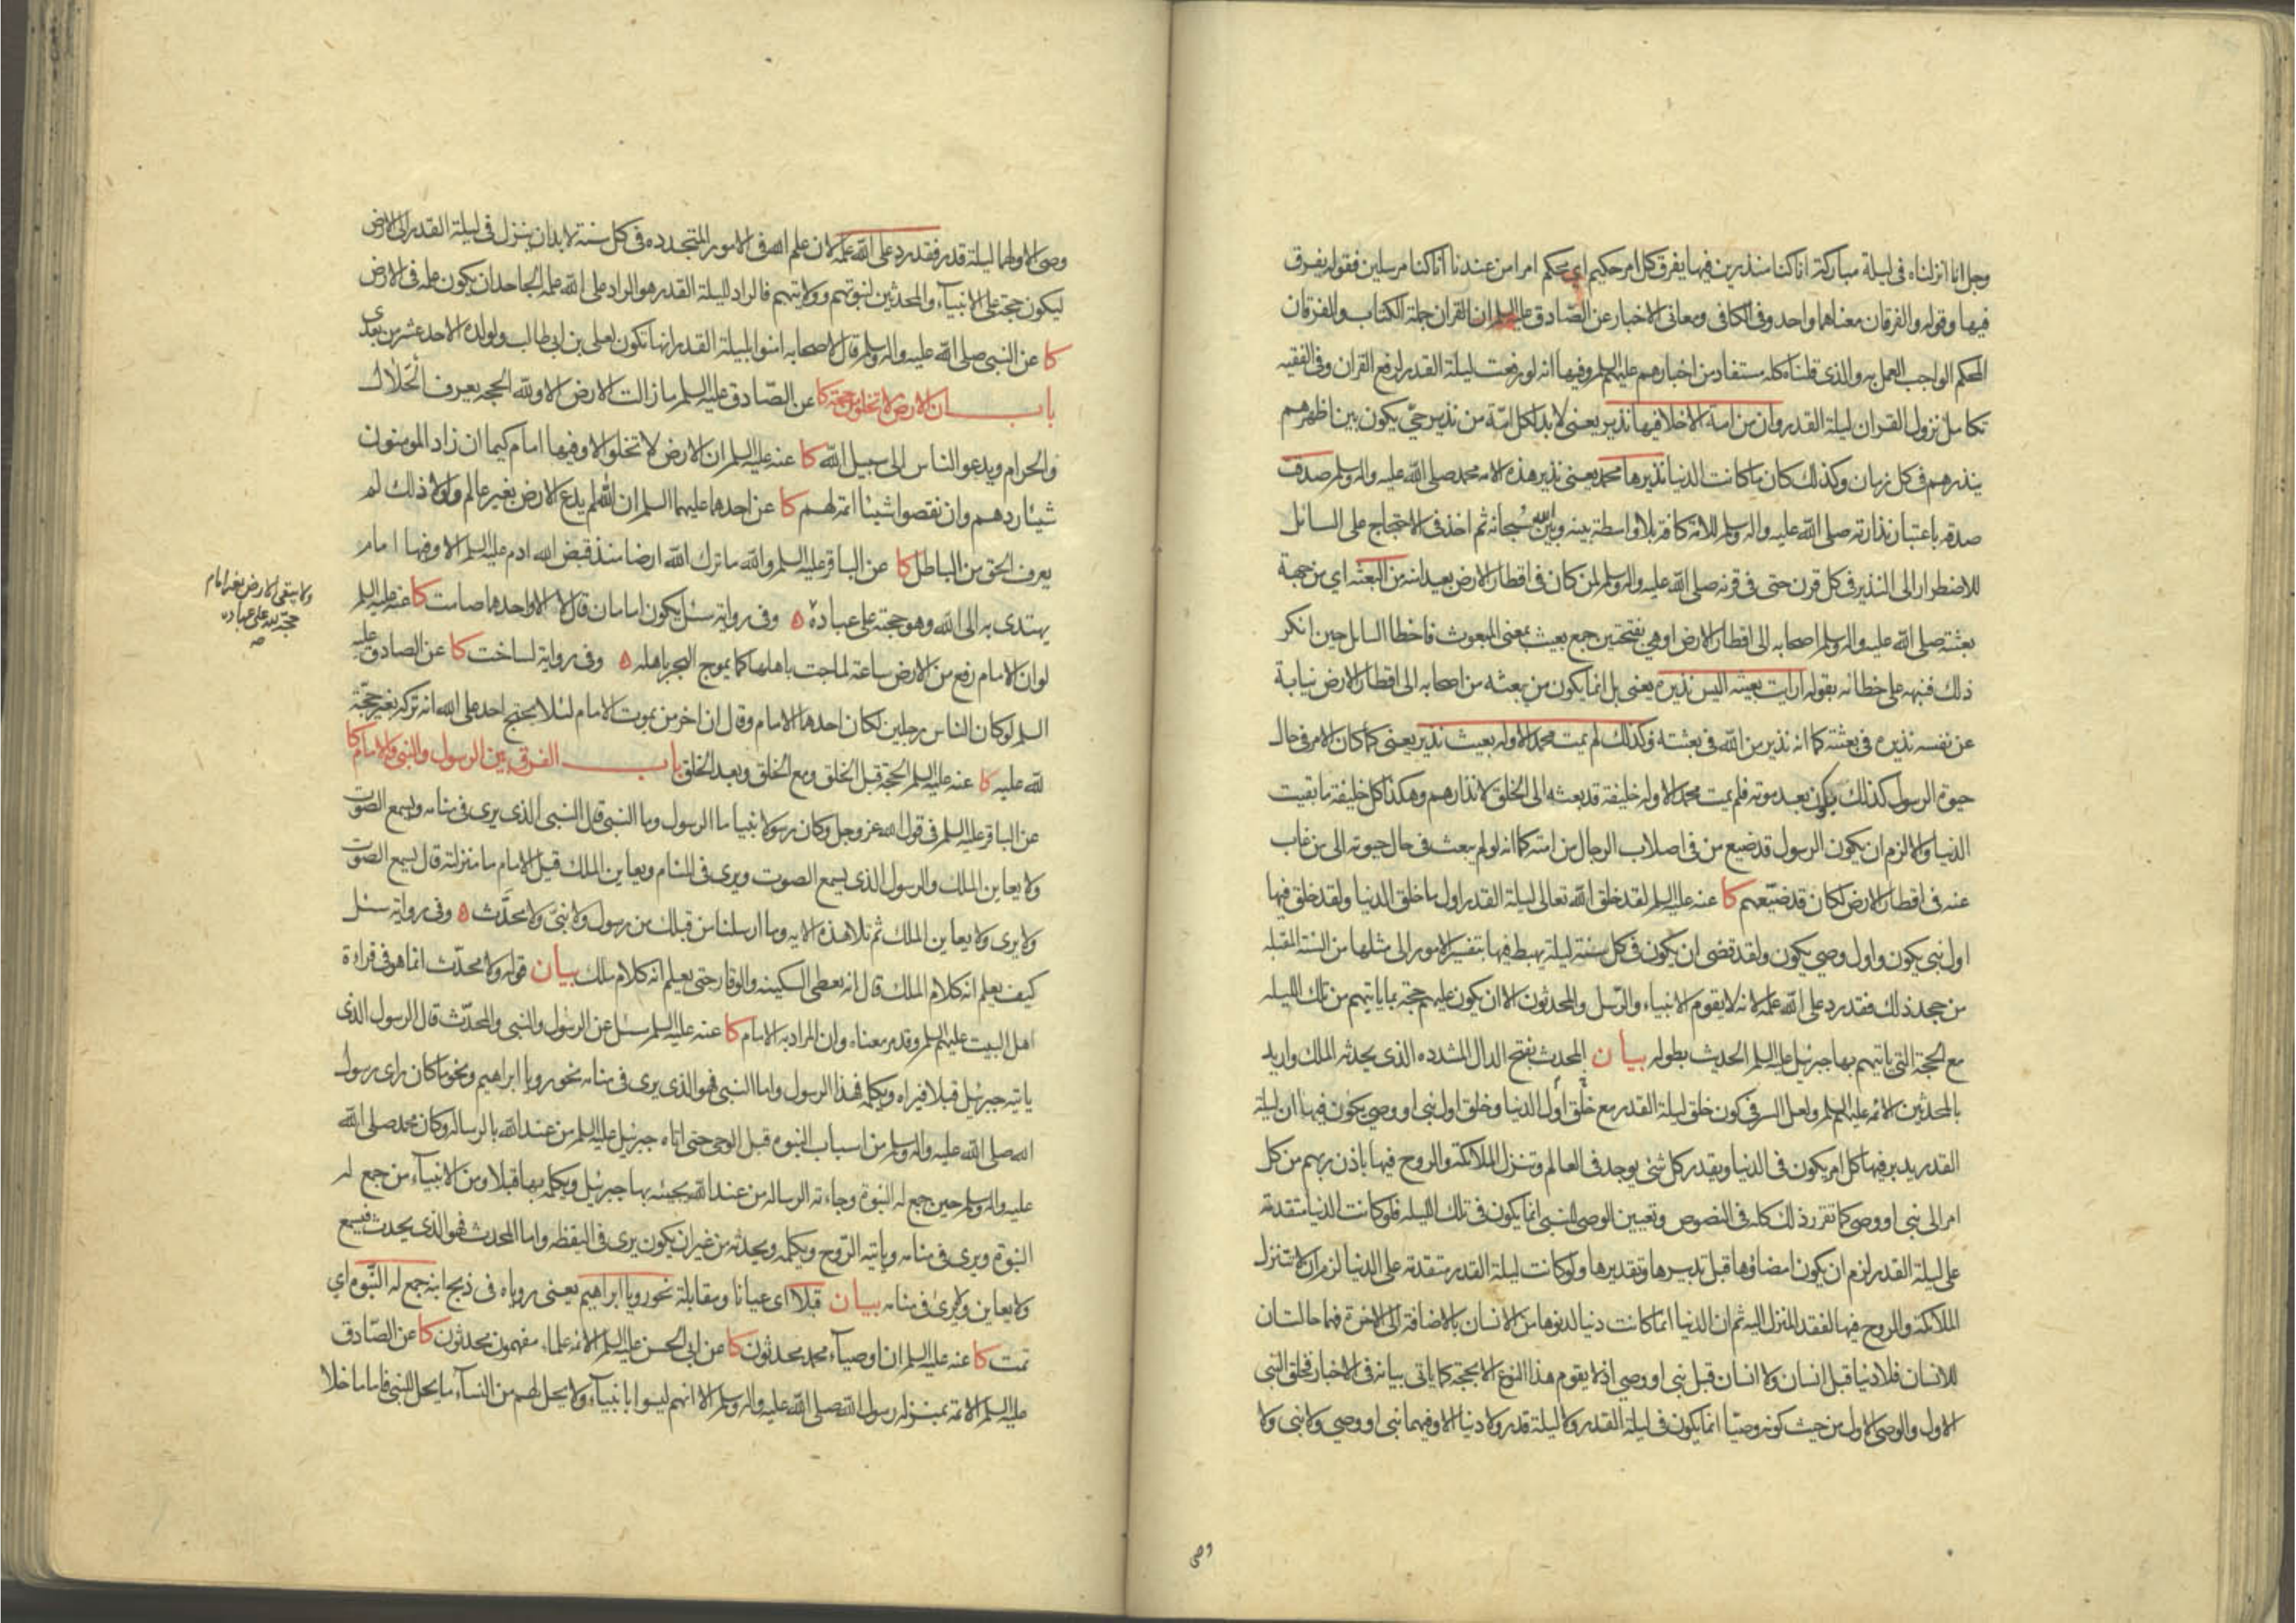 وجل انا انزلناه فى ليلة مباركة انا كنا منذرين فيها يفرق كل امر حكيم اى محكم امرا من عندنا انا كنا مرسلين فقوله يفرق
فيها وقوله والفرقان معناهما واحد وفى الكافى ومعانى الاخبار عن الصادق عليه السلم ان القران جملة الكتاب والفرقان
المحكم الواجب العمل به والذى قلناه كله مستفاد من اخبارهم عليهم السلم وفيها انه لو رفعت ليلة القدر لرفع القران وفى الفقيه
تكامل نزول القران ليلة القدر وان من امة الا خلا فيها نذير يعنى لا بد لكل امة من نذير حى يكون بين اظهرهم
ينذرهم فى كل زمان وكذلك كان ما كانت الدنيا نذيرها محمد يعنى نذير هذه الامه محمد صلى الله عليه واله وسلم صدق
صدقه باعتبار نذارته صلى الله عليه واله وسلم للامة كافة بلا واسطة بينه وبين الله سبحانه ثم اخذ فى الاحتجاج على السائل
للاضطرار الى النذير فى كل قرن حتى فى قرنه صلى الله عليه واله وسلم لمن كان فى اقطار الارض بعيدا منه من البعثه اى من جهة
بعثته صلى الله عليه واله وسلم اصحابه الى اقطار الارض او هى بفتحتين جمع بعيث بمعنى المبعوث فاخطا السائل حين انكر
ذلك فنبهه على خطائه بقوله ارايت بعيثه اليس نذيره يعنى بل انما يكون من بعثه من اصحابه الى اقطار الارض نيابة
عن نفسه نذيره فى بعثته كما انه نذير من الله فى بعثته وكذلك لم يمت محمد الا وله بعيث نذير يعنى كما كان الامر فى حال
حيوة الرسول كذلك يكون بعد موته فلم يمت محمد الا وله خليفة قد بعثه الى الخلق لانذارهم وهكذا كل خليفة ما بقيت
الدنيا والا لزم ان يكون الرسول قد ضيع من فى اصلاب الرجال من امته كما انه لو لم يبعث فى حال حيوته الى من غاب
عنه فى اقطار الارض لكان قد ضيّعهم كا عنه عليه السلم لقد خلق الله تعالى ليلة القدر اول ما خلق الدنيا ولقد خلق فيها
اول نبى يكون واول وصى يكون ولقد قضى ان يكون فى كل سنة ليلة يهبط فيها بتفسير الامور الى مثلها من السنة المقبله
من جحد ذلك فقد رد على الله علمه لانه لا يقوم الانبياء والرّسل والمحدثون الا ان يكون عليهم حجة بما ياتيهم من تلك الليله
مع الحجة التى ياتيهم بها جبرئيل عليه السلم الحديث بطوله بيان المحدث بفتح الدال المشدده الذى يحدثه الملك واريد
بالمحدثين الائمه عليهم السلم ولعل السر فى كون خلق ليلة القدر مع خلق اول الدنيا وخلق اول نبى او وصى يكون فيها ان ليلة
القدر يدبر فيها كل امر يكون فى الدنيا ويقدر كل شئ يوجد فى العالم وتنزل الملائكة والروح فيها باذن ربهم من كل
امر الى نبى او وصى كما تقرر ذلك كله فى النصوص وتعيين الوصى للنبى انما يكون فى تلك الليله فلو كانت الدنيا متقدمة
على ليلة القدر لزم ان يكون امضاؤها قبل تدبيرها وتقديرها ولو كانت ليلة القدر متقدمة على الدنيا لزم ان لا تتنزل
الملائكة والروح فيها لفقد المنزل اليه ثم ان الدنيا انما كانت دنيا لدنوها من الانسان بالاضافة الى الاخرة فهما حالتان
للانسان فلا دنيا قبل انسان ولا انسان قبل نبى او وصى اذ لا يقوم هذا النوع الا بحجة كما ياتى بيانه فى الاخبار فخلق النبى
الاول والوصى الاول من حيث كونه وصيّا انما يكون فى ليلة القدر ولا ليلة قدر ولا دنيا الا وفيهما نبى او وصى ولا نبى ولا
وصى
وصى الا ولهما ليلة قدر فقد رد على الله علمه لان علم الله فى الامور المتجدده فى كل سنة لا بد ان ينزل فى ليلة القدر الى الارض
ليكون حجة على الانبيآء والمحدثين لنبوتهم وولايتهم فالراد لليلة القدر هو الراد على الله علمه الجاحد ان يكون علمه فى الارض
كا عن النبى صلى الله عليه واله وسلم قال لاصحابه امنوا بليلة القدر انها تكون لعلى بن ابى طالب ولولده الاحد عشر من بعدى
باب ان الارض لا تخلو من حجة كا عن الصّادق عليه السلم ما زالت الارض الا ولله الحجه يعرف الحلال
والحرام ويدعو الناس الى سبيل الله كا عنه عليه السلم ان الارض لا تخلو الا وفيها امام كيما ان زاد المومنون
شيئا ردهم وان نقصوا شيئا اتمه لهم كا عن احدهما عليهما السلم ان الله لم يدع الارض بغير عالم ولولا ذلك لم
يعرف الحق من الباطل كا عن الباقر عليه السلم والله ما ترك الله ارضا منذ قبض الله ادم عليه السلم الا وفيها امام
يهتدى به الى الله وهو حجته على عباده ه وفى رواية سئل يكون امامان قال لا الا واحدهما صامت كا عنه عليه السلم
ولا يبقى الارض بغير امام
حجة لله على عباده
صه
لو ان الامام رفع من الارض ساعة لماجت باهلها كما يموج البحر باهله ه وفى رواية لساخت كا عن الصادق عليه
السلم لو كان الناس رجلين لكان احدهما الامام وقال ان اخر من يموت الامام لئلا يحتج احد على الله انه تركه بغير حجّة
لله عليه كا عنه عليه السلم الحجة قبل الخلق ومع الخلق وبعد الخلق باب الفرق بين الرسول والنبى والامام كا
عن الباقر عليه السلم فى قول الله عز وجل وكان رسولا نبيا ما الرسول وما النبى قال النبى الذى يرى فى منامه ويسمع الصوت
ولا يعاين الملك والرسول الذى يسمع الصوت ويرى فى المنام ويعاين الملك قيل الامام ما منزلته قال يسمع الصوت
ولا يرى ولا يعاين الملك ثم تلا هذه الايه وما ارسلنا من قبلك من رسول ولا نبىّ ولا محدَّث ه وفى رواية سئل
كيف يعلم انه كلام الملك قال انه يعطى السكينه والوقار حتى يعلم انه كلام ملك بيان قوله ولا محدّث انما هو فى قراءة
اهل البيت عليهم السلم وقد مر معناه وان المراد به الامام كا عنه عليه السلم سئل عن الرسول والنبى والمحدّث قال الرسول الذى
ياتيه جبرئيل قبلا فيراه ويكلمه فهذا الرسول واما النبى فهو الذى يرى فى منامه نحو رويا ابراهيم ونحو ما كان راى رسول
الله صلى الله عليه واله وسلم من اسباب النبوه قبل الوحى حتى اتاه جبرئيل عليه السلم من عند الله بالرساله وكان محمد صلى الله
عليه واله وسلم حين جمع له النبوة وجاءته الرساله من عند الله يجيئه بها جبرئيل ويكلمه بها قبلا ومن الانبيآء من جمع له
النبوة ويرى فى منامه وياتيه الرّوح ويكلمه ويحدثه من غير ان يكون يرى فى اليقظه واما المحدث فهو الذى يحدث فيسمع
ولا يعاين ولا يرى فى منامه بيان قبلا اى عيانا ومقابلة نحو رويا ابراهيم يعنى روياه فى ذبح ابنه جمع له النّبوه اى
تمت كا عنه عليه السلم ان اوصيآء محمد محدثون كا عن ابى الحسن عليه السلم الائمه علماء مفهمون محدثون كا عن الصّادق
عليه السلم الائمة بمنزله رسول الله صلى الله عليه واله وسلم الا انهم ليسوا بانبيآء ولا يحل لهم من النسآء ما يحل للنبى فاما ما خلا